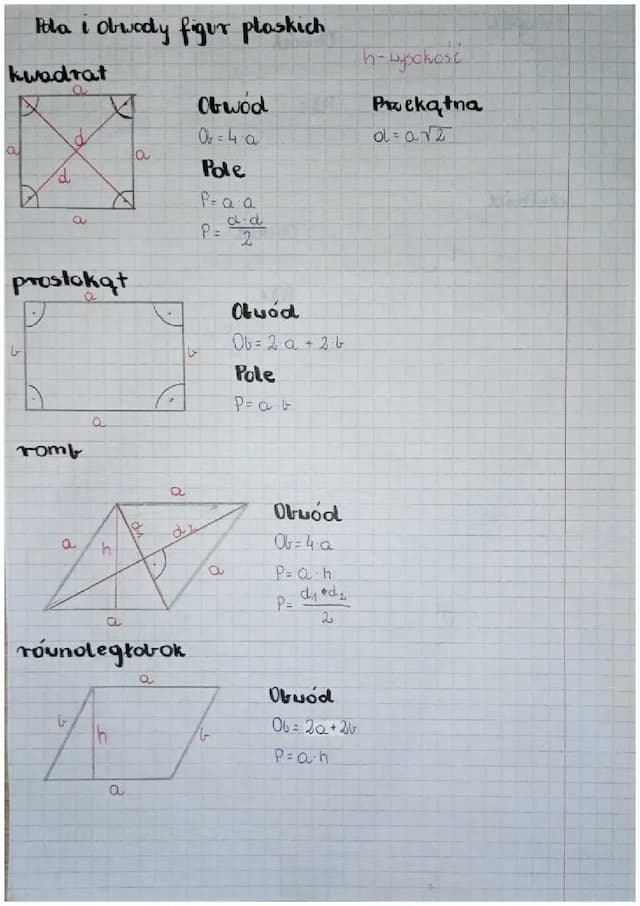 Pola i obwody figur płaskich
h-wysokość
kwadrat
a
a
d
d
a
a
Obwód
Ob=4·a
Pole
P=a·a
P=d·d/2
Przekątna
d=a√2
prostokąt
a
b
b
a
Obwód
Ob=2·a+2·b
Pole
P=a·b
romb
a
a
h
d1
d2
a
a
Obwód
Ob=4·a
P=a·h
P=d1·d2/2
równoległobok
a
b
h
b
a
Obwód
Ob=2a+2b
P=a·h